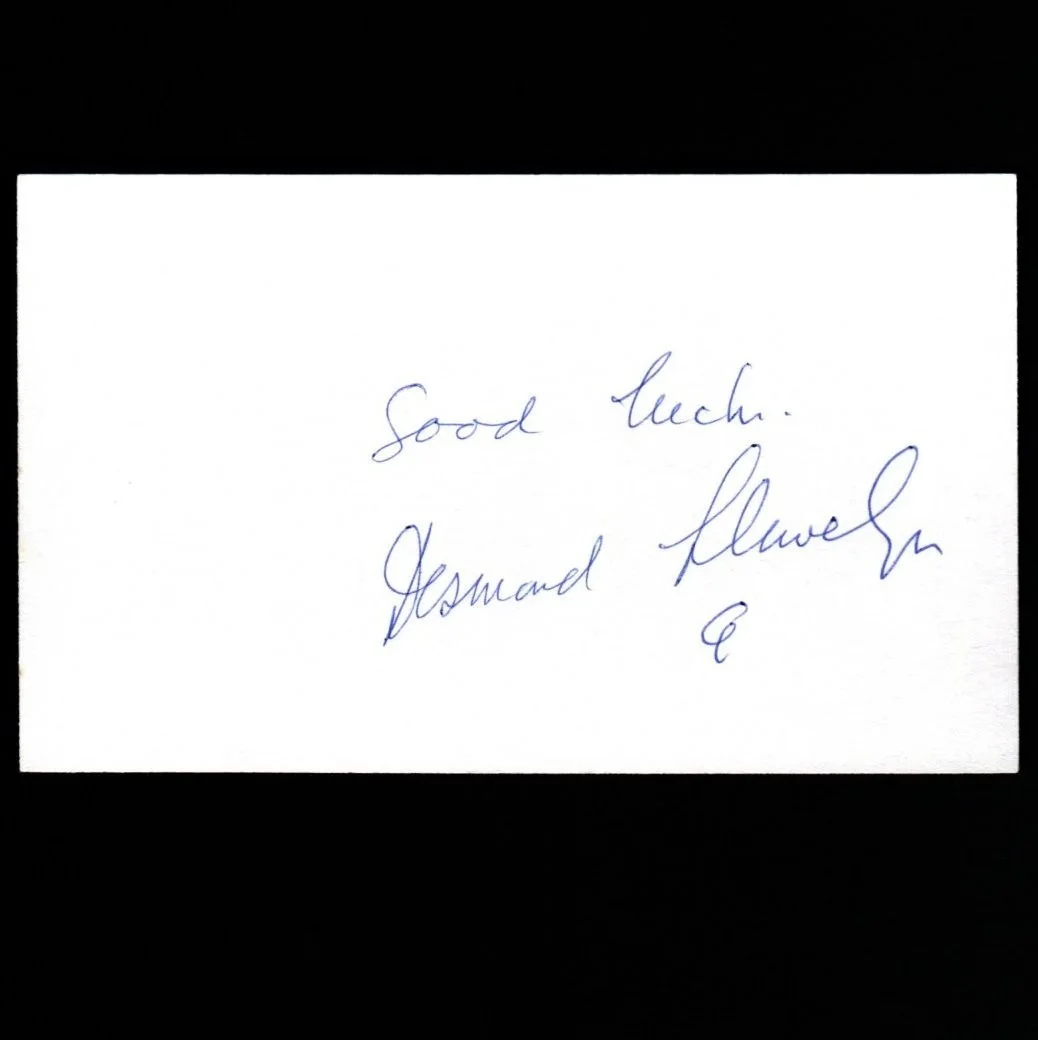 Good luck.
Desmond Llewelyn
Q